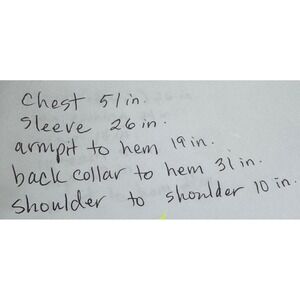 Chest 51 in.
Sleeve 26 in.
armpit to hem 19 in.
back collar to hem 31 in.
shoulder to shoulder 10 in.